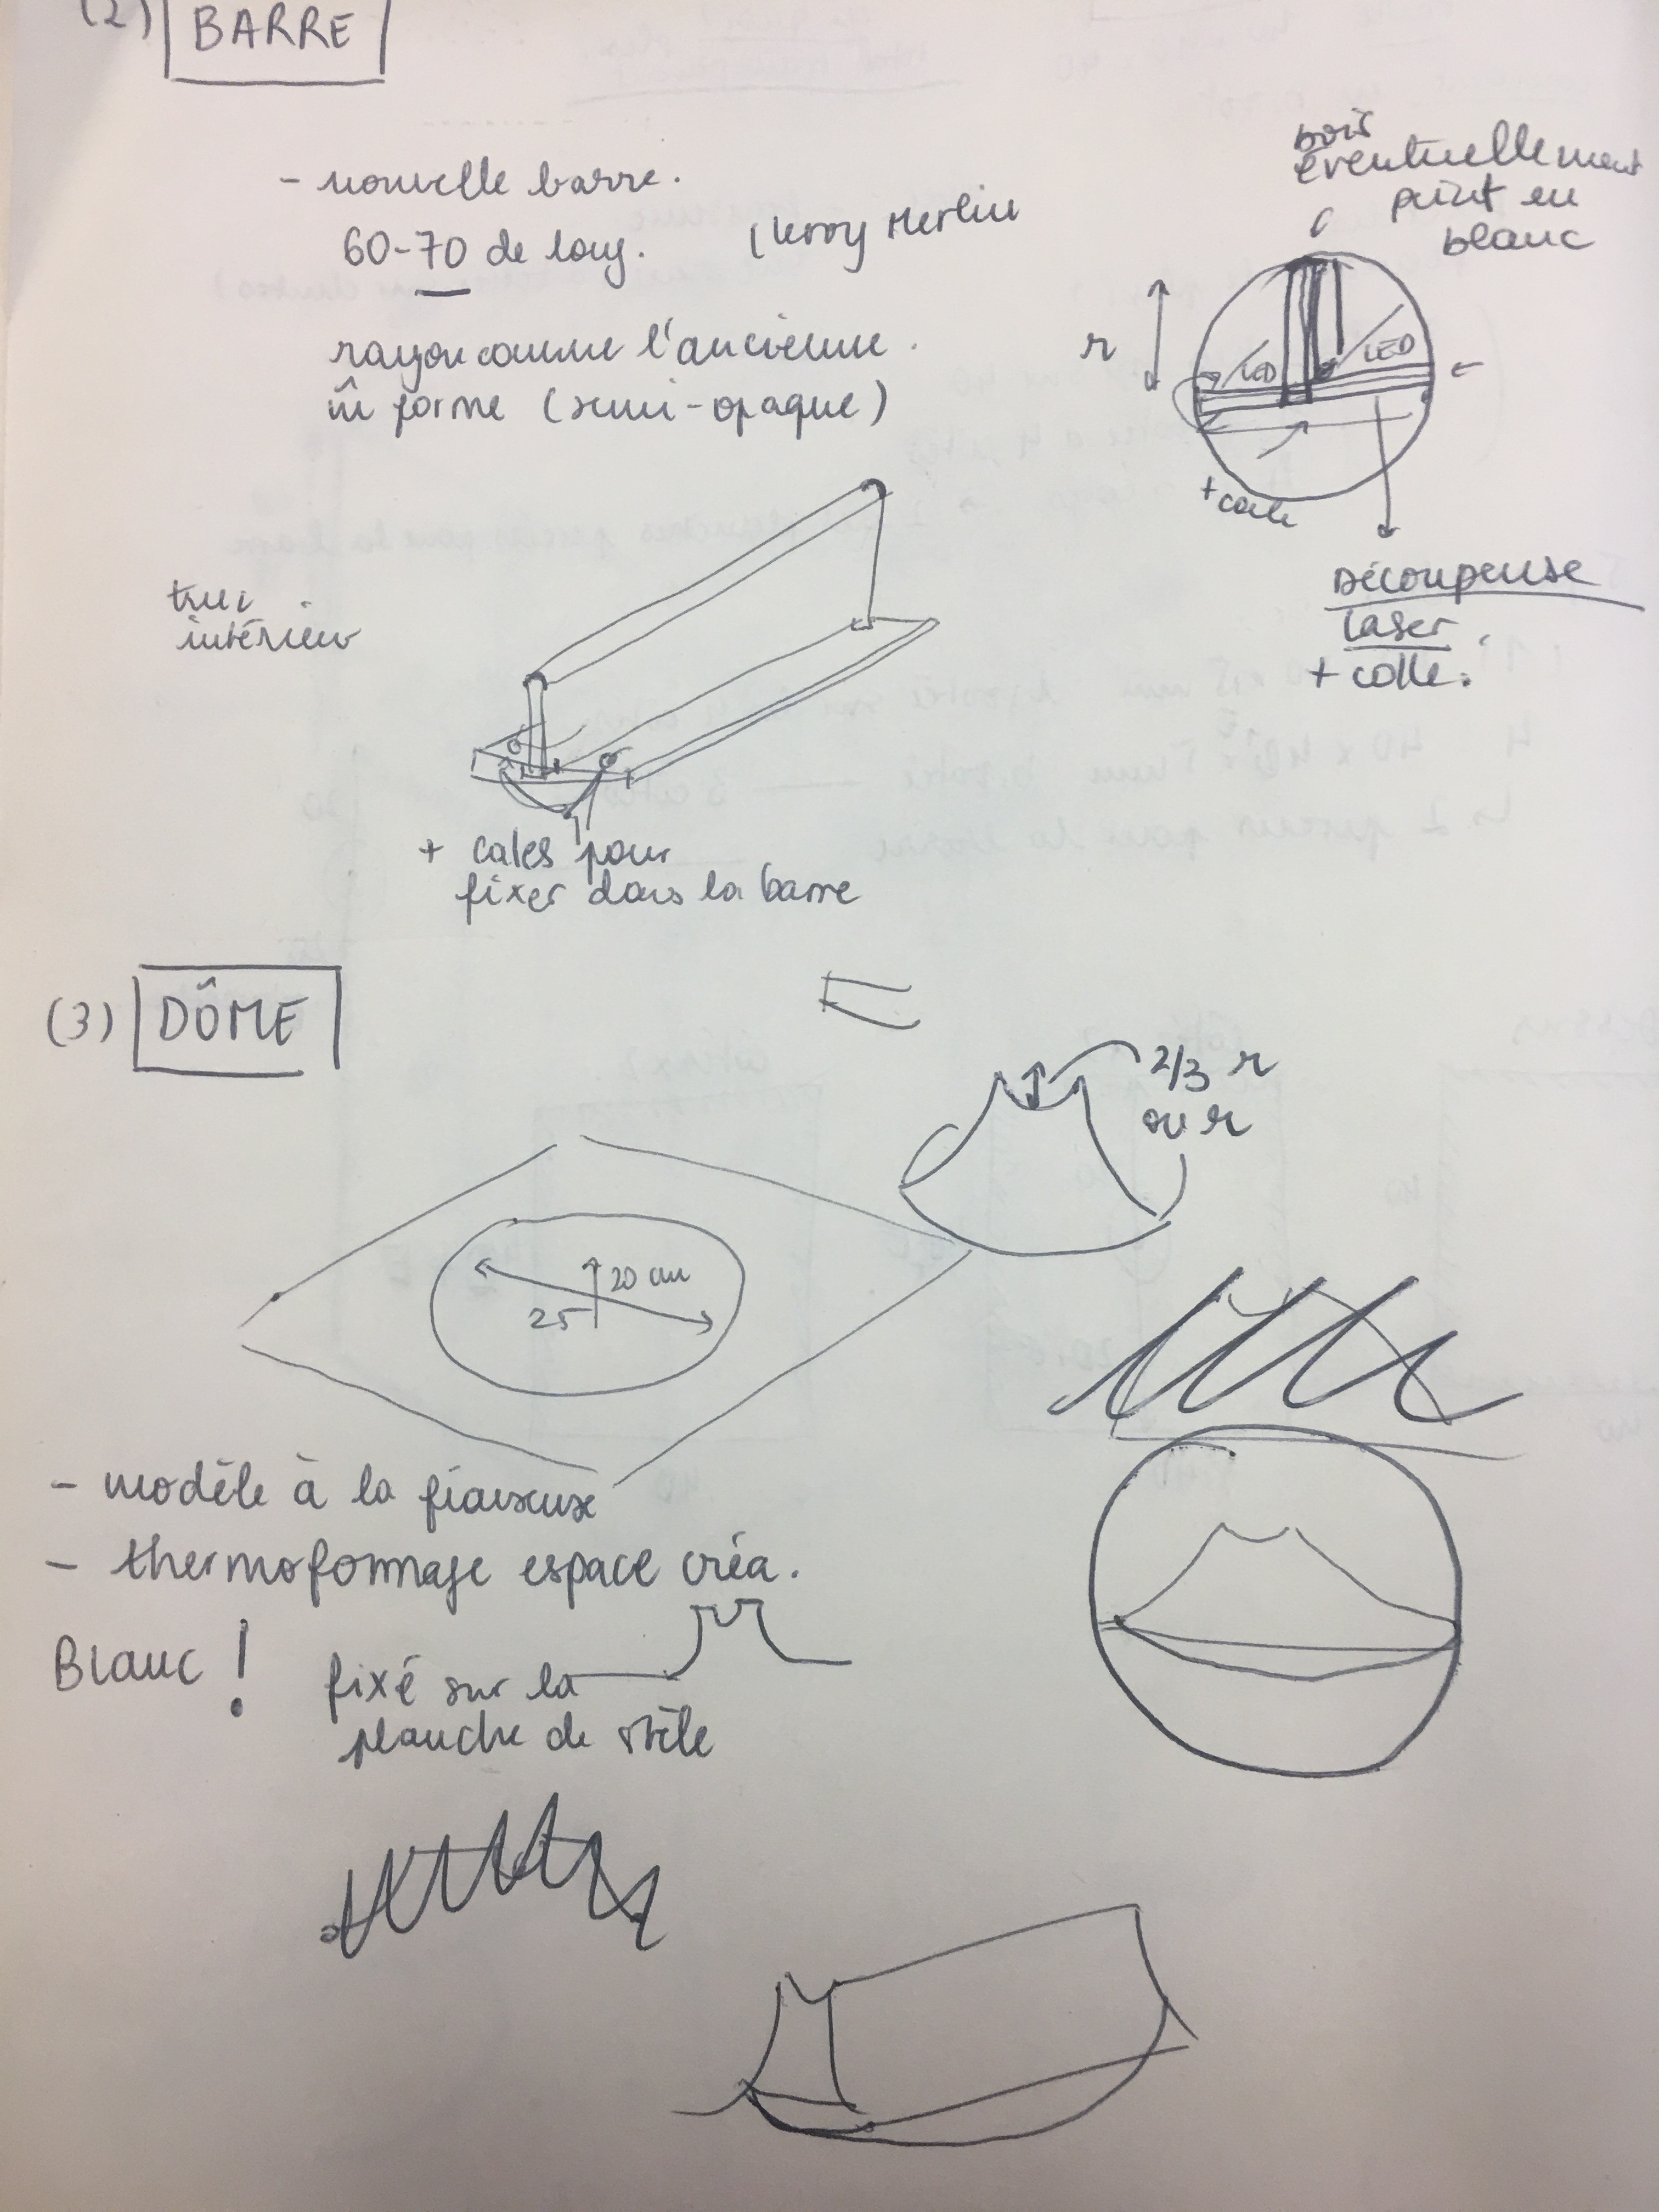 (2) BARRE
- nouvelle barre.
60-70 de long. (Leroy Merlin
rayon comme l'ancienne.
m̂ forme (semi-opaque)
r
bois
éventuellement
peint en
blanc
+ cale
Découpeuse
laser
+ colle.
intérieur
+ cales pour
fixer dans la barre
(3) DÔME
20 cm
25
2/3 r
ou r
- modèle à la
- thermoformage espace créa.
Blanc !
fixé sur la
planche de stèle